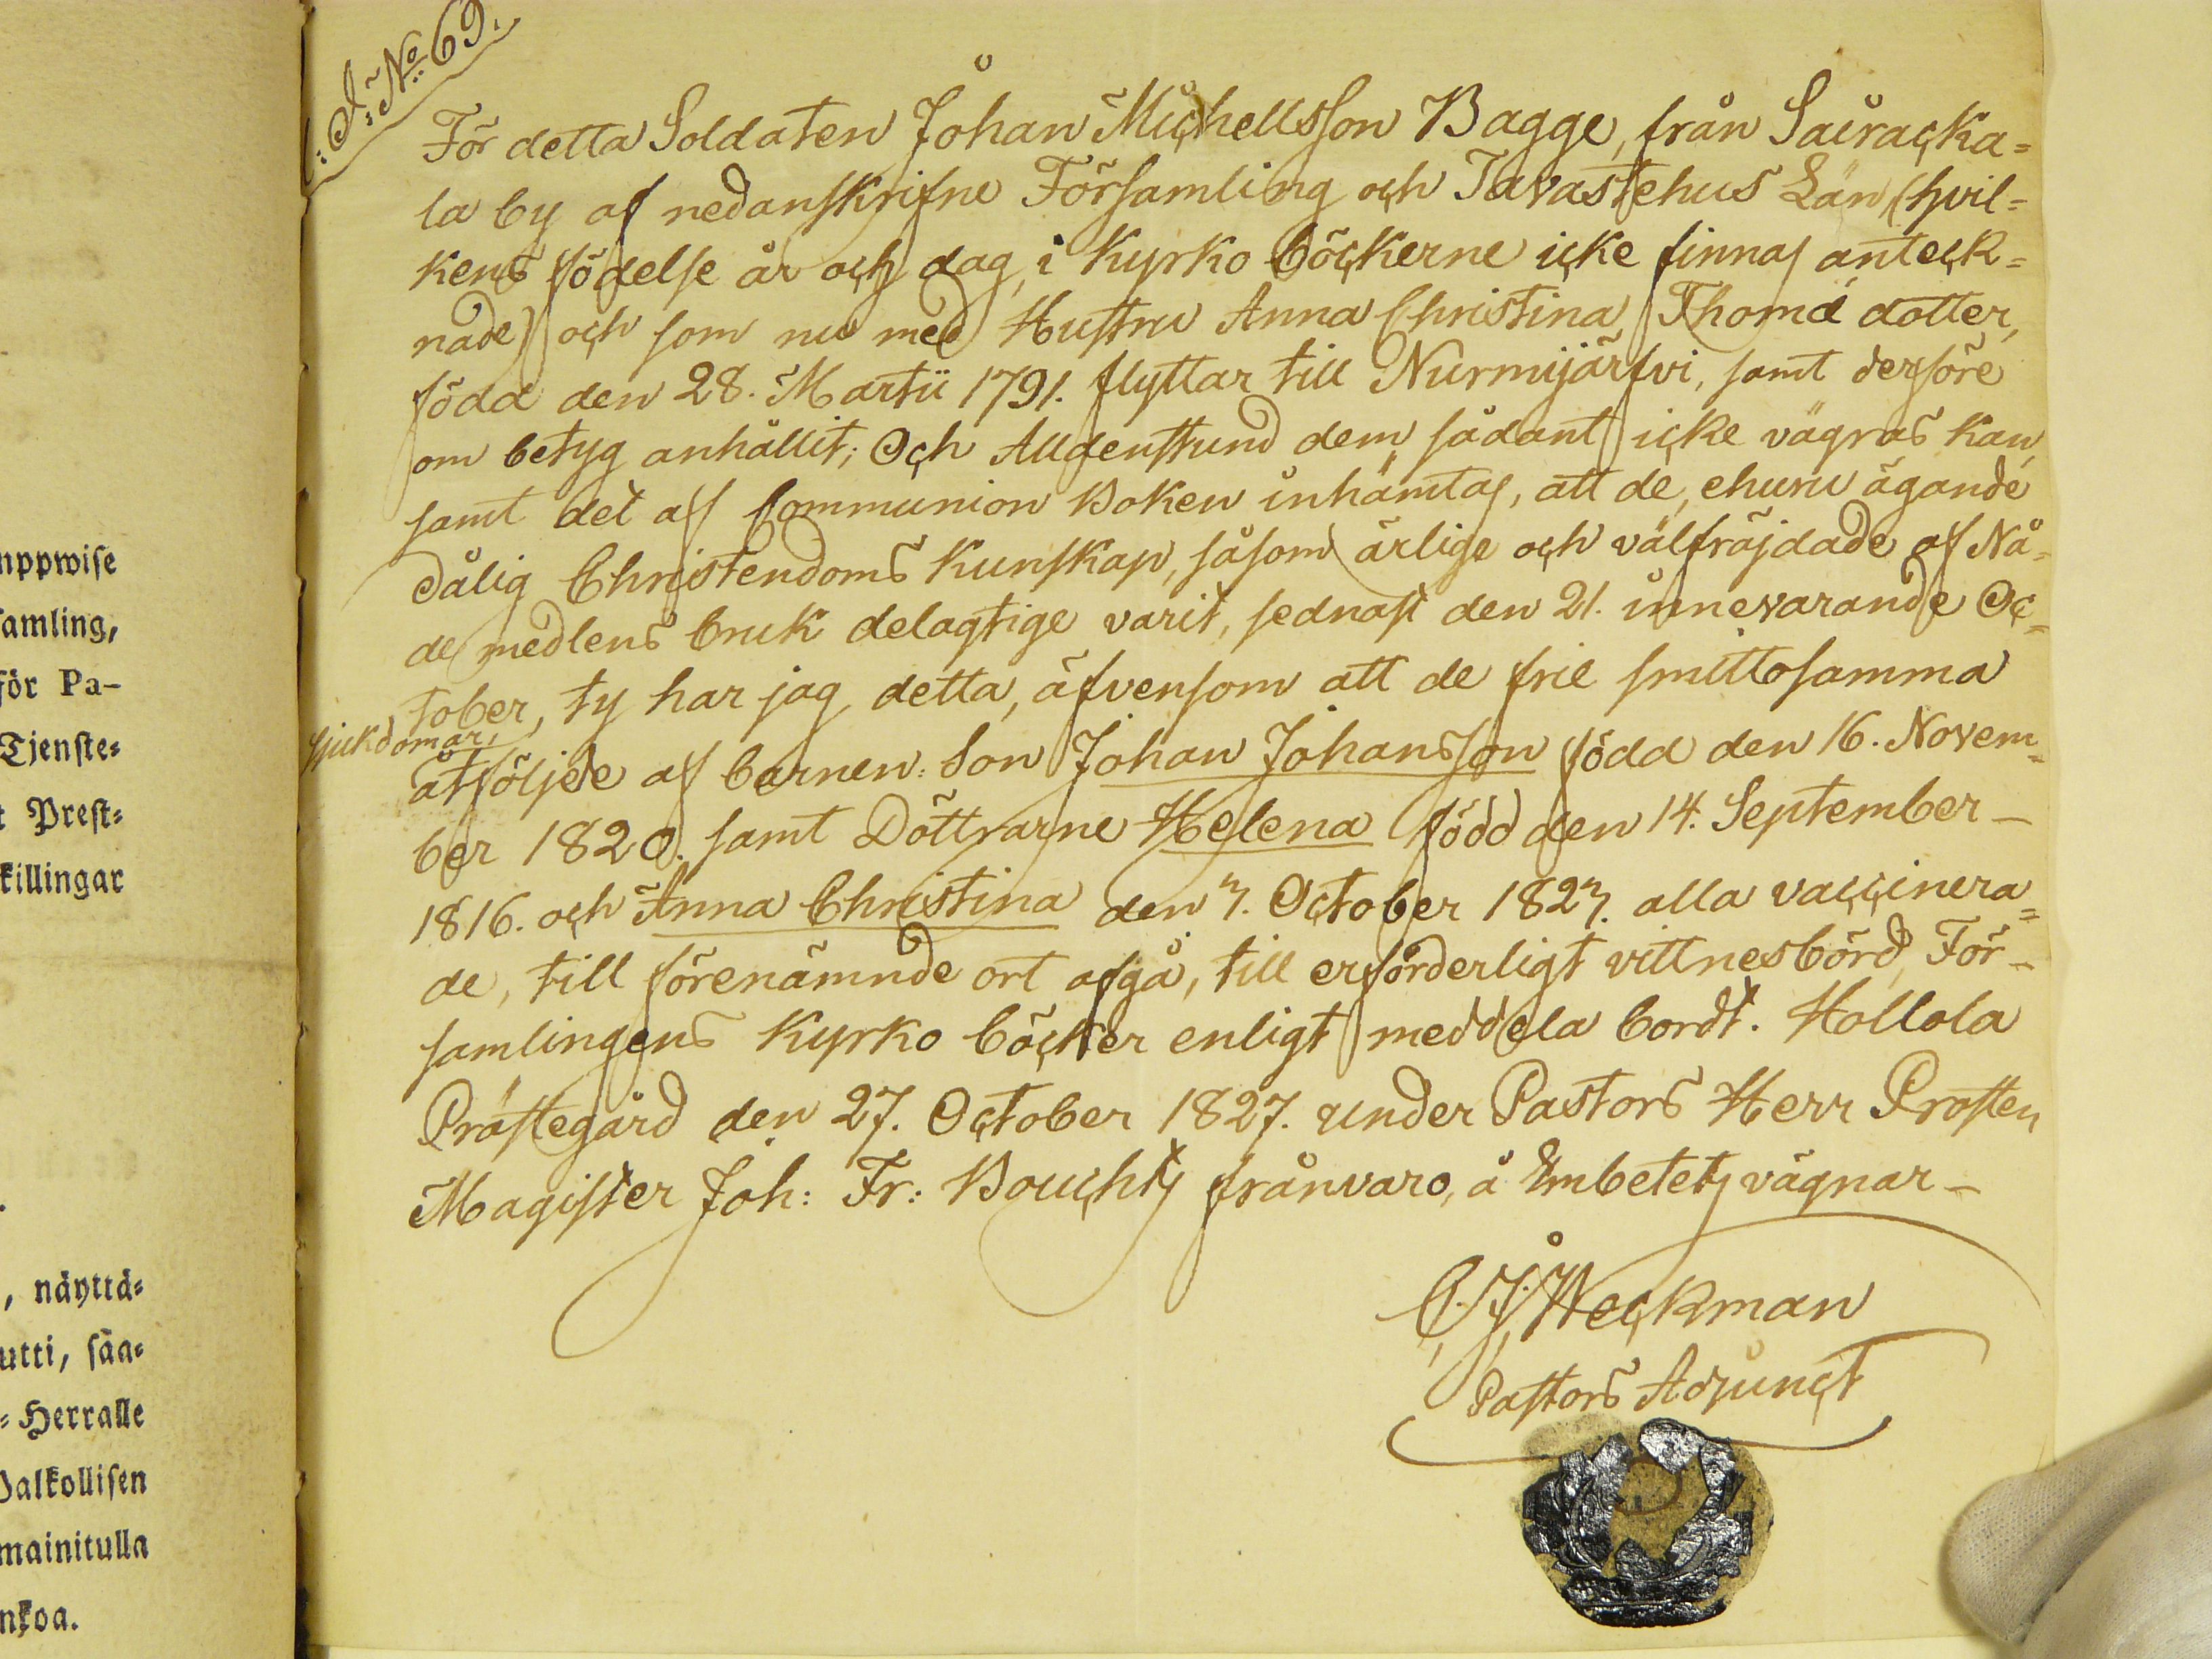 :S: No 69.
För detta Soldaten Johan Michellsson Bagge, från Sairacka=
la by af nedanskrifne Församling och Tavastehus Län (hvil=
kens födelse år och dag i Kyrko böckerne icke finnas anteck=
nade) och som nu med Hustru Anna Christina Thomæ dotter,
född den 28. Martii 1791. flyttar till Nurmijärfvi, samt derföre
om betyg anhållit; Och Alldenstund dem sådant icke vägras kan,
samt det af Communion Boken inhämtas, att de, ehuru ägande
dålig Christendoms Kunskap, såsom ärlige och välfräjdade af Nå=
de medlens bruk delagtige varit, sednast den 21. innevarande Oc=
tober, ty har jag detta, äfvensom att de frie smittosamma
sjukdomar,
åtföljde af barnen: Son Johan Johansson född den 16. Novem=
ber 1820. samt Döttrarne Helena född den 14. September –
1816. och Anna Christina den 7. October 1827. alla vaccinera=
de, till förenämnde ort afgå, till erforderligt vittnesbörd, För–
samlingens Kyrko böcker enligt meddela bordt. Hollola
Prästegård den 27. October 1827. under Pastors Herr Prosten
Magister Joh: Fr: Bouchts frånvaro, å Embetets vägnar –
C. J. Weckman
Pastors Adjunct
nppwise
samling,
för Pa-
Tjenste=
t Prest=
killingar
, näyttä=
utti, säa=
= Herralle
Palkollisen
mainitulla
nkoa.